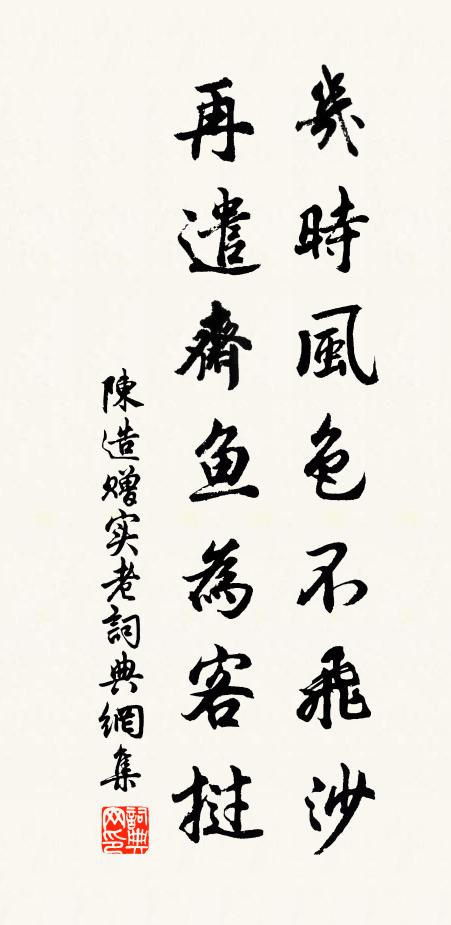 幾時風色不飛沙
再遣齋魚為客撻
陳造贈实老詞典網集
詞典网印